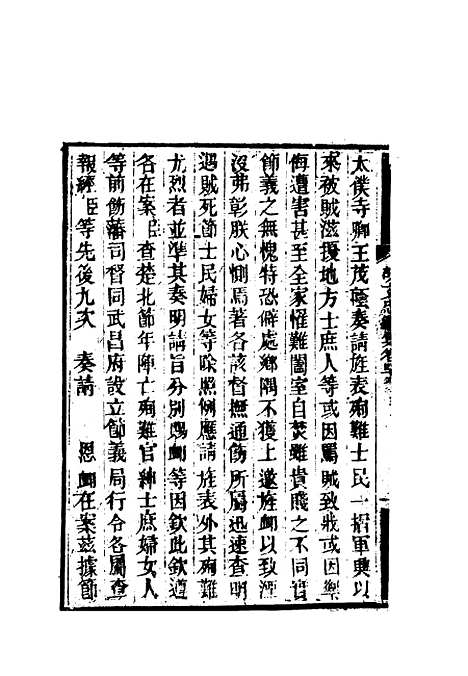 太僕寺卿王茂蔭奏請旌表殉難士民一摺軍興以
來被賊滋擾地方士庶人等或因罵賊致戕或因禦
侮遭害甚至全家罹難闔室自焚雖貴賤之不同實
節義之無愧特恐僻處鄉隅不獲上邀旌卹以致湮
沒弗彰朕心惻焉著各該督撫通飭所屬迅速查明
遇賊死節士民婦女等除照例應請旌表外其殉難
尤烈者並準其奏明請旨分別賜卹等因欽此欽遵
各在案臣查楚北節年陣亡殉難官紳士庶婦女人
等前飭藩司督同武昌府設立節義局行令各屬查
報經臣等先後九次 奏請 恩卹在案茲據節